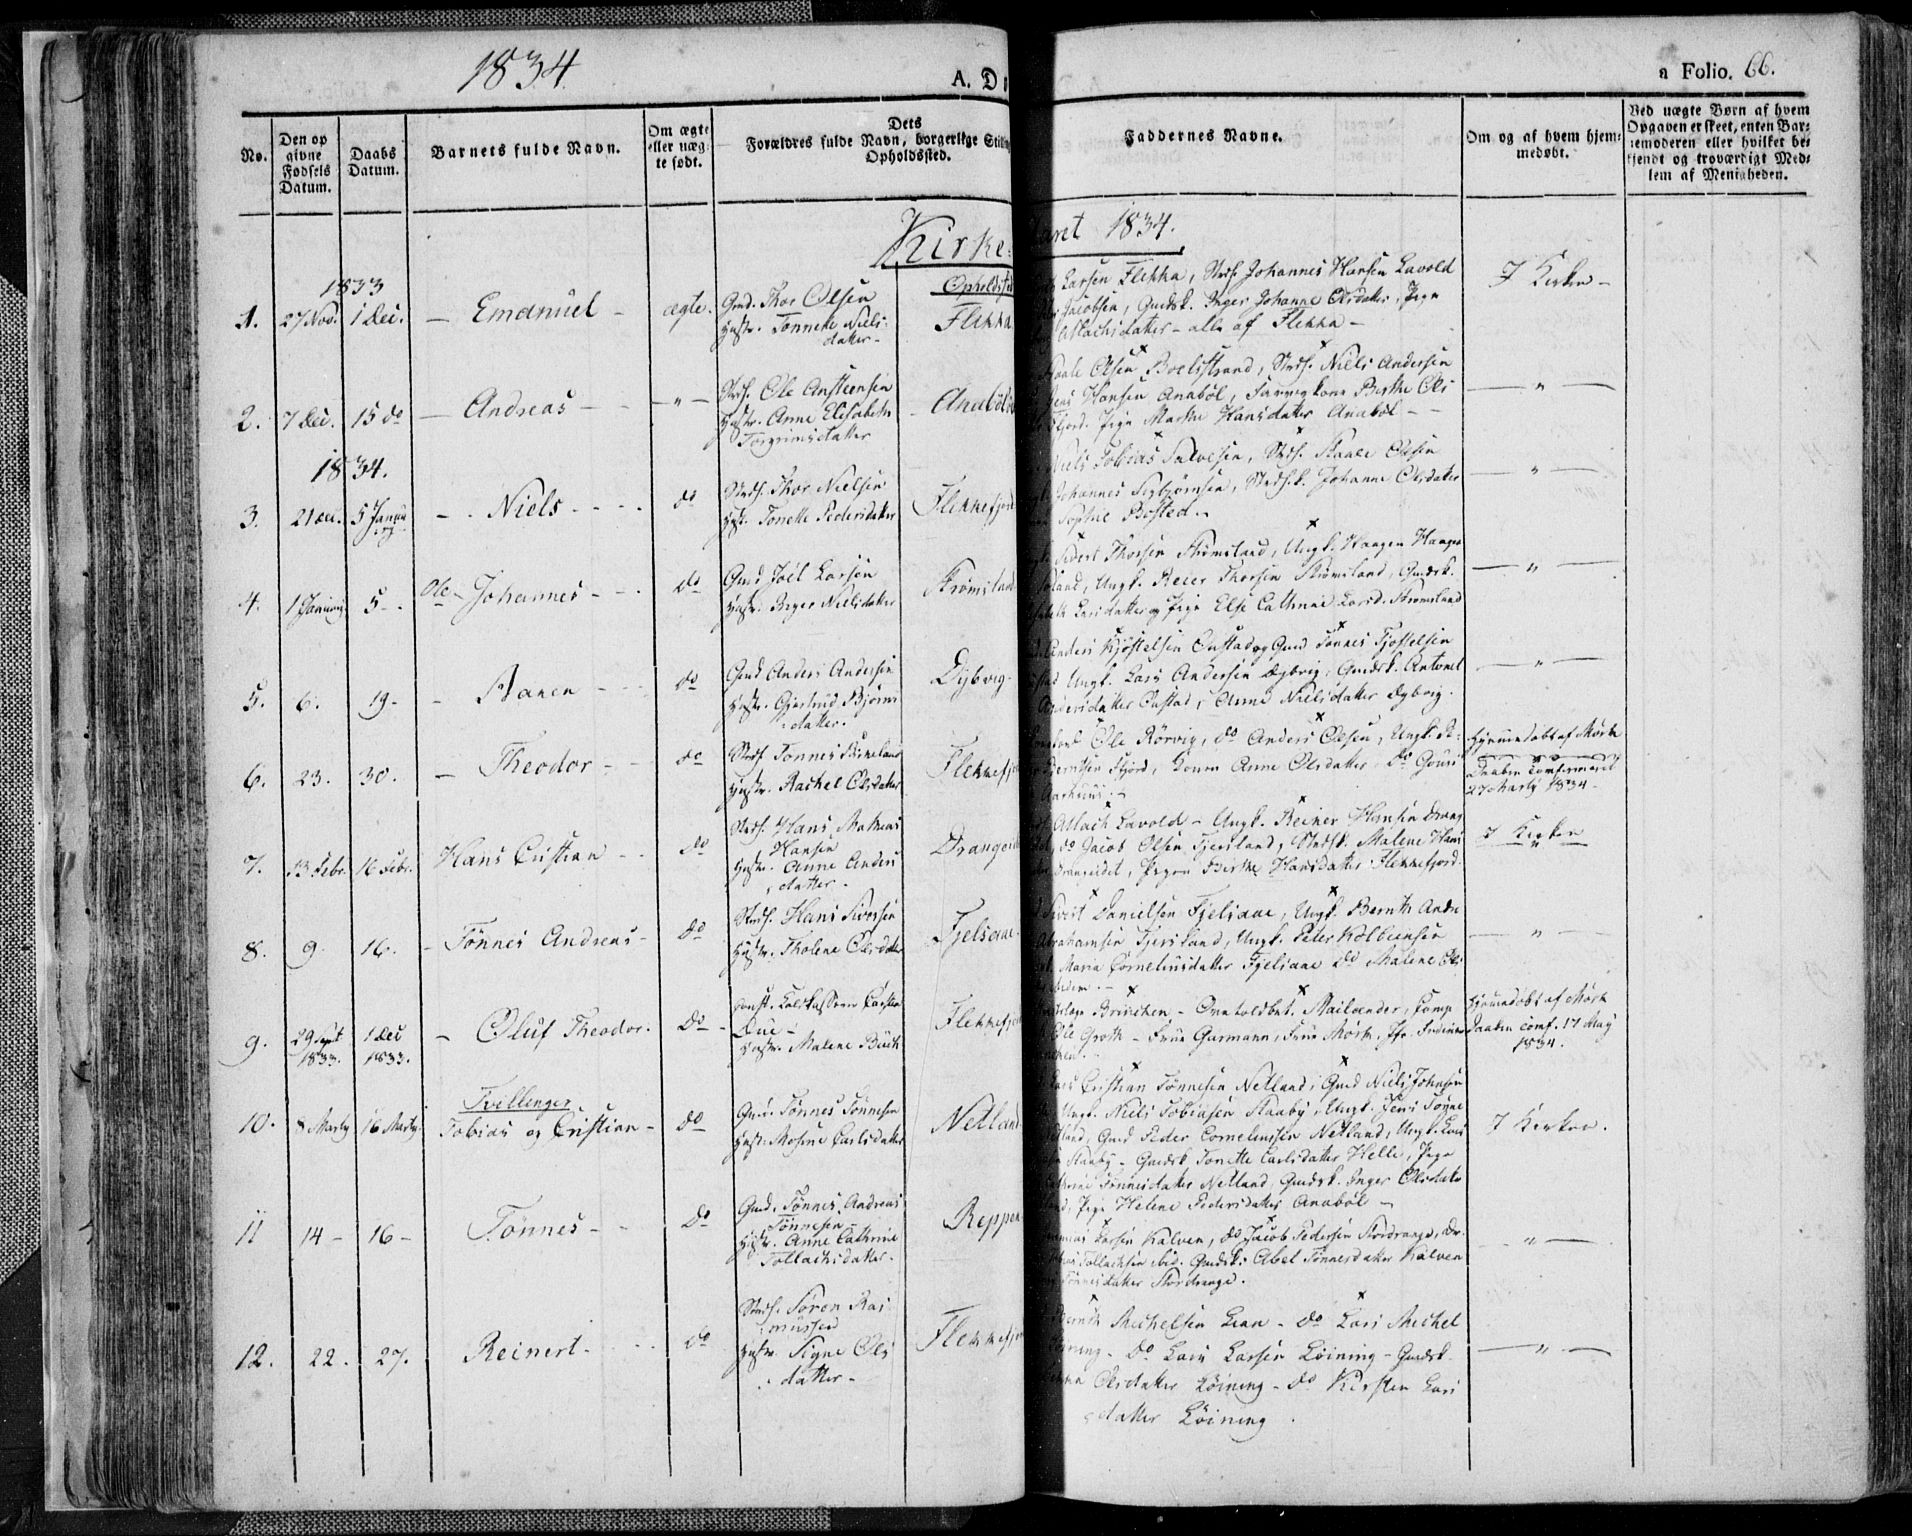 1834
A. D
a Folio. 66.
No.
Den op
givne
Fødsels
Datum.
Daabs
Datum.
Barnets fulde Navn.
Om ægte
eller uæg-
te født.
Dets
Forældres fulde Navn, borgerlige Stilling
Opholdssted.
Faddernes Navne.
Om og af hvem hjem-
medøbt.
Ved uægte Børn af hvem
Opgaven er skeet, enten Bar-
nemoderen eller hvilket be-
kjendt og troværdigt Med-
lem af Menigheden.
Kirke-
aaret 1834.
1833
Opholdsted
1. 27 Nov. 1 Dec. – Emanuel – ægte. Gmd. Thor Olsen
Hustr. Tonnette Niels-
datter –
Flekka
Larsen Flekka, Strds. Johannes Hansen Lavold
Jacobsen, Gmdsk. Inger Johanne Olsdatter, Pige
Atlachsdatter – alle af Flekka –
I Kirken –
2. 7 Dec. 15 do – Andreas – – " – Strds. Ole Ansteensen
Hustr. Anne Elisabeth
Torgrimsdatter
Anabøl
Staale Olsen Boelstrand, Strds. Niels Andersen
Jens Hansen Anabøl, Birthe Ols
Fjord. Pige Marthe Hansdatter Anabøl –
– " –
1834.
3. 21 Dec. 5 Januar – Niels – do Strds. Thor Nielsen
Hustr. Tonette Pedersdatter
Flekkefjord
Niels Tobias Salvesen, Strds. Staale Olsen
Johannes Sigbjørnsen, Strds.k. Johanne Olsdatter
Sophie Bosted. –
– " –
4. 1 Januar 5 – Ole Johannes – do Gmd Joël Larsen
Hustr. Berger Nielsdatter
Strømsland
Peder Thorsen Strømsland, Ungk. Haagen Haagen
Ungk. Reier Thorsen Strømsland, Gmdsk.
Larsdatter og Pige Else Cathrine Larsd. Strømsland
– " –
5. 6. 19 – – Aanen – do Gmd Anders Andersen
Hustr. Gjertrud Bjørns
datter.
Dybvig
Anders Kjøstelsen Oustad og Gmd Tønnes Fjostelsen
Ungk. Lars Andersen Dybvig, Gmdsk. Antonet
Andersdatter Oustad, Anne Nielsdatter Dybvig.
– " –
6. 23. 30. – Theodor – do Strds Tonnes Strømsland
Hustr. Rachel Olsdatter
Flekkefj
Ole Rørvig, do Anders Olsen, Ungk. Pe-
Berntsen Fjord, Konen Anne Olsdatter, do
Aarhuus. –
Hjemmedøbt af Mørk
Daaben confirmeret
27 Marty 1834 –
7. 13 Febr. 16 Febr. Hans Cristian – do Strds. Hans Mathias
Hansen
Hustr. Anne Anders
datter –
Drangeid
Atlach Lavold – Ungk. Reiner Hansen Drang
do Jacob Olsen Fjersland, Strdsk. Malene Hans
Drangeidet, Pigen Birthe Hansdatter Flekkefjord.
I Kirken
8. 9. 16. – Tønnes Andreas – do Strds. Hans Sivertsen
Hustr. Tholene Olsdatter
Fjelsaae
Sivert Danielsen Fjelsaae, Ungk. Bernth Andr
Abrahamsen Fjersland, Ungk. Peter Kolbeensen
Maria Corneliusdatter Fjelsaae do Malene Ols
– " –
9. 29 Sept 1833. 1 Dec 1833. – Oluf Theodor. do – Const. Toldkasserer Carsten
Due –
Hustr. Malene Buch
Flekkefj
Brincken, – Mailænder, Comp
Ole Groth – Frue Garmann, Frue Mørk, Jfr.
Hjemmedøbt af Mørk
Daaben comf. 17 May
1834.
10. 8 Marty 16 Marty. Tvillenger
Tobias og Cristian – do Gmd. Tønnes Tønnesen
Hustr. Mosine Carlsdatter
Netland
Lars Cristian Tønnesen Netland, Gmd Niels Johnsen
Ungk. Niels Tobiasen Staaby, Ungk. Jens Tønne
Netland, Gmd Peder Corneliussen Netland, Ungk. Lars
Staaby – Gmdsk. Tonette Carlsdatter Helle, Pige
Cathrine Tønnesdatter Netland, Gmdsk. Inger Olsdatter
Pige Helene Pedersdatter Anabøl –
I Kirken.
11 14 – 16 – Tønnes – do Gmd. Tønnes Andreas
Tønnesen –
Hustr. Anne Cathrine
Tollachsdatter –
Reppen
Larsen Kalven, do Jacob Pedersen Stordrange, do
Tollachsen ibid. Gmdsk. Abel Tønnesdatter Kalven
Tønnesdatter Stordrange.
– " –
12. 22. 27. Reinert. do Strds. Søren Ras-
mussen
Hustr. Signe Ols
datter –
Flekkefj
Bernth Michelsen Lian – do Lars Michel
Løining – do Lars Larsen Løining – Gmdsk.
Olsdatter Løining – do Kirsten Lars
datter Løining.
– " –